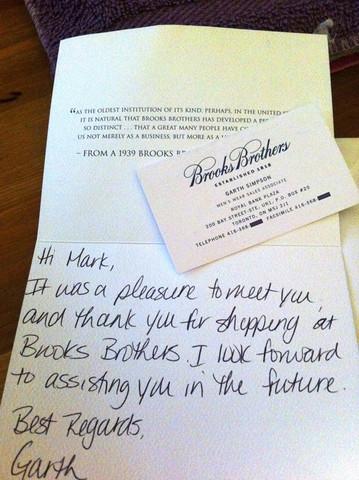 "AS THE OLDEST INSTITUTION OF ITS KIND, PERHAPS, IN THE UNITED
IT IS NATURAL THAT BROOKS BROTHERS HAS DEVELOPED A
SO DISTINCT . . . THAT A GREAT MANY PEOPLE HAVE
US NOT MERELY AS A BUSINESS, BUT MORE AS A
~ FROM A 1939 BROOKS
Brooks Brothers
ESTABLISHED 1818
GARTH SIMPSON
MEN'S WEAR SALES ASSOCIATE
ROYAL BANK PLAZA
200 BAY STREET-STE. UR1, P.O. BOX #20
TORONTO, ON M5J 2J1
TELEPHONE 416-368 FACSIMILE 416-368
Hi Mark,
It was a pleasure to meet you
and thank you for shopping at
Brooks Brothers. I look forward
to assisting you in the future.
Best Regards,
Garth